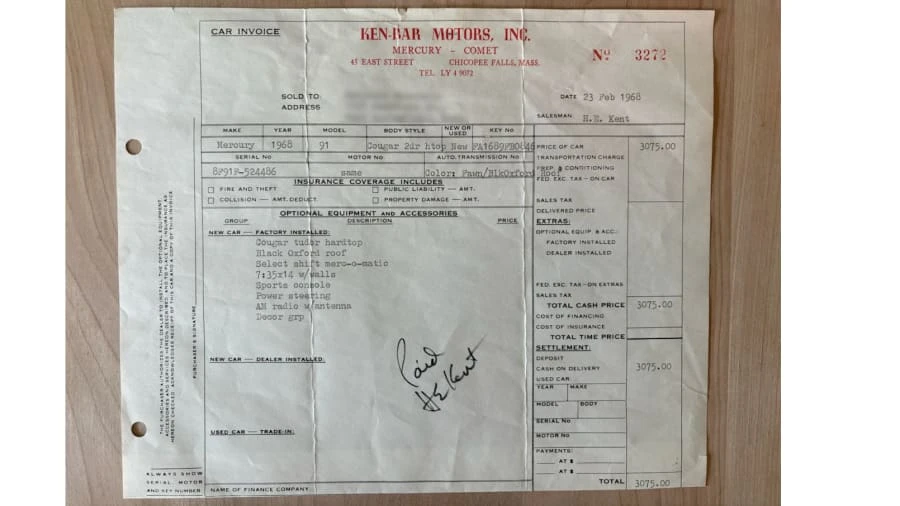 CAR INVOICE
KEN-BAR MOTORS, INC.
MERCURY – COMET
45 EAST STREET CHICOPEE FALLS, MASS.
TEL. LY 4 9072
No 3272
SOLD TO:
ADDRESS
DATE 23 Feb 1968
SALESMAN H.E. Kent
MAKE YEAR MODEL BODY STYLE NEW OR USED KEY No
Mercury 1968 91 Cougar 2dr htop New FA1689FB0846
SERIAL No MOTOR No AUTO. TRANSMISSION No
8F91F-524486 same Color: Fawn/BlkOxford Roof
INSURANCE COVERAGE INCLUDES
FIRE AND THEFT PUBLIC LIABILITY — AMT.
COLLISION — AMT. DEDUCT. PROPERTY DAMAGE — AMT.
OPTIONAL EQUIPMENT AND ACCESSORIES
GROUP DESCRIPTION PRICE
NEW CAR — FACTORY INSTALLED:
Cougar tudor hardtop
Black Oxford roof
Select shift merc-o-matic
7:35x14 w/walls
Sports console
Power steering
AM radio w/antenna
Decor grp
Paid
HE Kent
NEW CAR — DEALER INSTALLED:
USED CAR — TRADE-IN:
NAME OF FINANCE COMPANY
PRICE OF CAR 3075.00
TRANSPORTATION CHARGE
PREP. & CONDITIONING
FED. EXC. TAX – ON CAR
SALES TAX
DELIVERED PRICE
EXTRAS:
OPTIONAL EQUIP. & ACC.:
FACTORY INSTALLED
DEALER INSTALLED
FED. EXC. TAX – ON EXTRAS
SALES TAX
TOTAL CASH PRICE 3075.00
COST OF FINANCING
COST OF INSURANCE
TOTAL TIME PRICE
SETTLEMENT:
DEPOSIT
CASH ON DELIVERY 3075.00
USED CAR:
YEAR MAKE
MODEL BODY
SERIAL No
MOTOR No
PAYMENTS:
AT $
AT $
TOTAL 3075.00
THE PURCHASER AUTHORIZES THE DEALER TO INSTALL THE OPTIONAL EQUIPMENT,
ACCESSORIES AND SERVICES HEREON DESCRIBED, AND TO PLACE THE INSURANCE AS
HEREON CHECKED. ACKNOWLEDGES RECEIPT OF THIS CAR AND A COPY OF THIS INVOICE
PURCHASER'S SIGNATURE
ALWAYS SHOW
SERIAL, MOTOR
AND KEY NUMBER